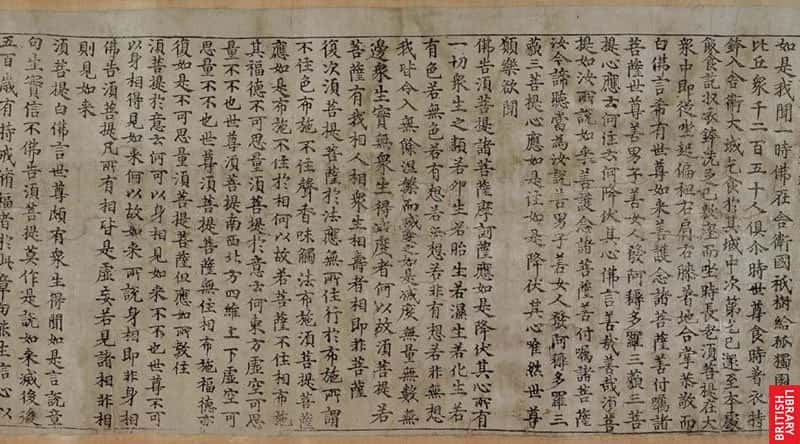 如是我聞一時佛在舍衛國祇樹給孤獨園
比丘衆千二百五十人俱尒時世尊食時著衣持
鉢入舍衛大城乞食於其城中次第乞已還至本處
飯食訖收衣鉢洗足已敷座而坐時長老須菩提在大
衆中即從坐起偏袒右肩右膝著地合掌恭敬而
白佛言希有世尊如來善護念諸菩薩善付囑諸
菩薩世尊善男子善女人發阿耨多羅三藐三菩
提心應云何住云何降伏其心佛言善哉善哉須菩
提如汝所說如來善護念諸菩薩善付囑諸菩薩
汝今諦聽當為汝說善男子善女人發阿耨多羅三
藐三菩提心應如是住如是降伏其心唯然世尊
願樂欲聞
佛告須菩提諸菩薩摩訶薩應如是降伏其心所有
一切衆生之類若卵生若胎生若濕生若化生若
有色若無色若有想若無想若非有想若非無想
我皆令入無餘涅槃而滅度之如是滅度無量無數無
邊衆生實無衆生得滅度者何以故須菩提若
菩薩有我相人相衆生相壽者相即非菩薩
復次須菩提菩薩於法應無所住行於布施所謂
不住色布施不住聲香味觸法布施須菩提菩薩
應如是布施不住於相何以故若菩薩不住相布施
其福德不可思量須菩提於意云何東方虛空可思
量不不也世尊須菩提南西北方四維上下虛空可
思量不不也世尊須菩提菩薩無住相布施福德亦
復如是不可思量須菩提菩薩但應如所教住
須菩提於意云何可以身相見如來不不也世尊不可
以身相得見如來何以故如來所說身相即非身相
佛告須菩提凡所有相皆是虛妄若見諸相非相
則見如來
須菩提白佛言世尊頗有衆生得聞如是言說章
句生實信不佛告須菩提莫作是說如來滅後後
五百歲有持戒脩福者於此章句能生信心以
BRITISH
LIBRARY